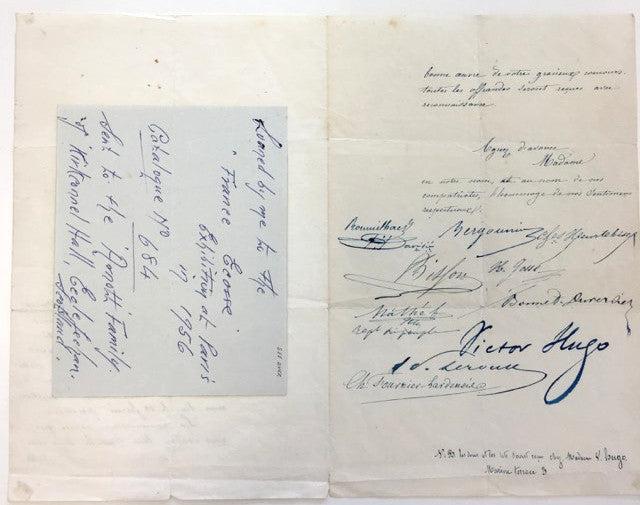 Loaned by me to the
"France Ecosse"
Exhibition at Paris
of 1956
Catalogue No
684
Sent to the Family
of Kirkconnel Hall, Ecclefechan.
Scotland.
bonne œuvre de votre gracieux concours.
toutes les offrandes seront reçues avec
reconnaissance.
Agréez d'avance
Madame
en notre nom, et au nom de nos
compatriotes, l'hommage de nos sentimens
respectueux.
Bergounin
Bisson
Mathé
Repst du peuple
Bonnet Duverdier
Victor Hugo
Leroux
Ch. Fournier
N. B. les dons et les lots seront reçus chez Madame V. hugo,
Marine terrace 3